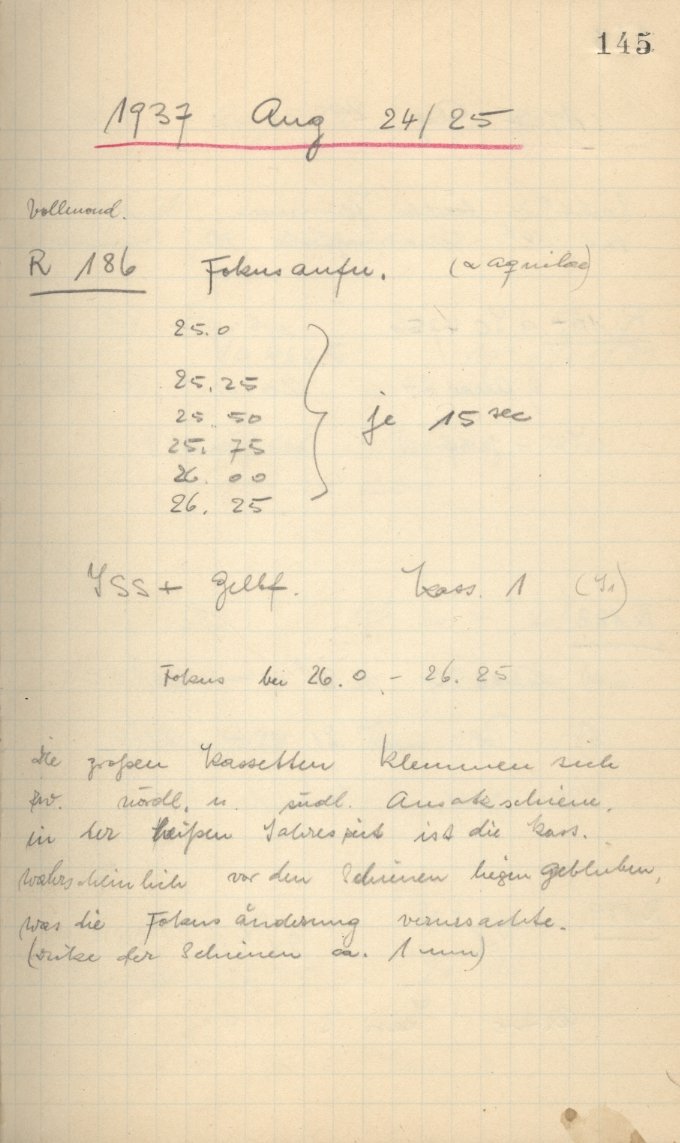 145
1937 Aug 24/25
Vollmond.
R 186 Fokusaufn. (α aquilae)
25.0
25.25
25.50
25.75
26.00
26.25
je 15 sec
ISS + Gelbf. Kass. 1
Fokus bei 26.0 - 26.25
Die großen Kassetten klemmen sich
zw. nördl. u. südl. Ansatzschiene,
in der heißen Jahreszeit ist die Kass.
wahrscheinlich vor den Schienen liegen geblieben,
was die Fokusänderung verursachte.
(Dicke der Schienen ca. 1 mm)